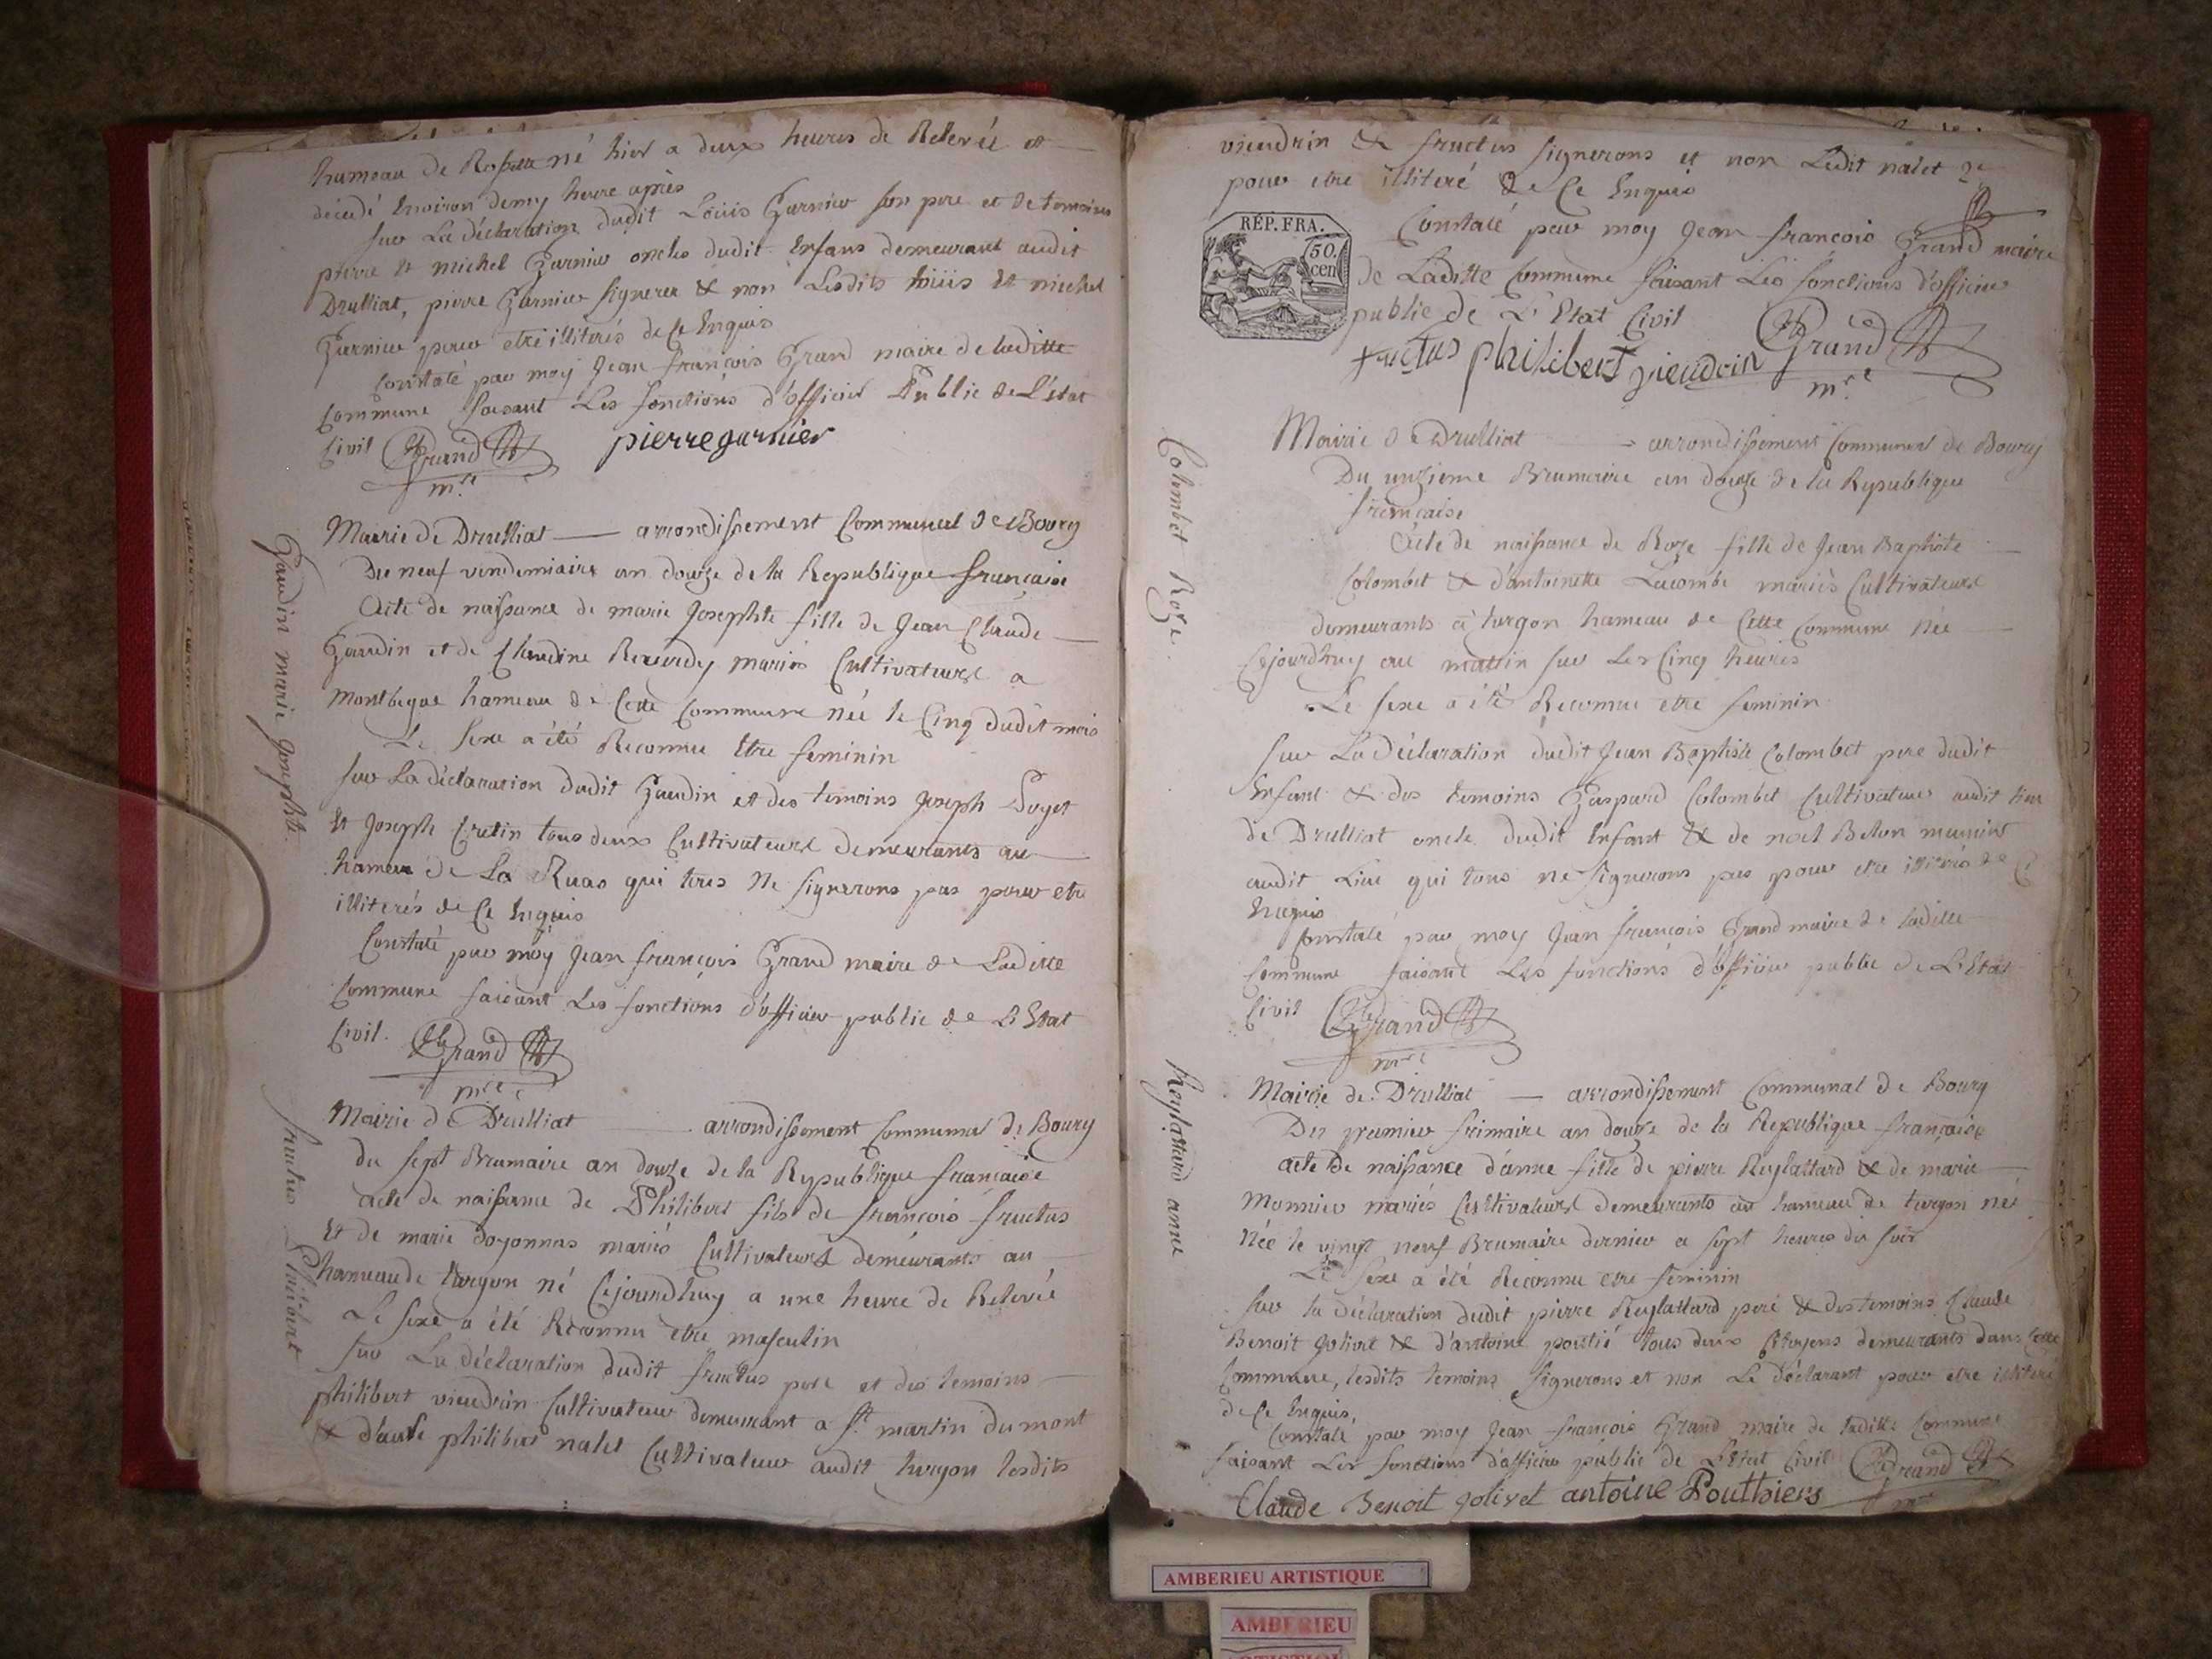 hameau de Rossettes né hier a deux heures de Relevée et
décédé Environ demy heure après
sur La déclaration dudit Loüis Garnier son pere et de temoins
pierre et michel Garnier oncles dudit Enfans demeurant audit
Drulliat, pierre Garnier signerea & non Lesdits loüis et michel
Garnier pour etre illiterés de ce Enquis
Constaté par moy Jean françois Grand maire de laditte
Commune faisant Les fonctions d'officier Public de L'état
Civil Grand pierre garnier
m.re
Gaudin marie Josephte.
Mairie de Drulliat — arrondissement Communal de Bourg
Du neuf vendemiaire an douze de la Republique française
Acte de naissance de marie Josephte fille de Jean Claude
Gaudin et de Claudine Reverdy mariés Cultivateurs a
Montbegue hameau de Cette Commune née le Cinq dudit mois
Le sexe a été Reconnu Etre feminin
sur La déclaration dudit Gaudin et des temoins Joseph Puget
Et Joseph Cretin tous deux Cultivateurs demeurants au
hameau de La Ruas qui tous ne signerons pas pour etre
illiterés de Ce Enquis
Constaté par moy Jean françois Grand maire de Laditte
Commune faisant Les fonctions d'officier public de L'Etat
Civil. Grand
m.re
fructus Philibert
Mairie de Drulliat — arrondissement Communal de Bourg
du sept Brumaire an douze de la Republique française
acte de naissance de Philibert fils de françois fructus
Et de marie doyonnas mariés Cultivateurs demeurants au
hameau de turgon né Cejourdhuy a une heure de Relevée
Le sexe a été Reconnu etre masculin
sur La déclaration dudit fructus pere et des temoins
philibert vieudrin Cultivateur demeurant a St. martin du mont
& d'autre philibert nalet Cultivateur audit turgon lesdits
vieudrin & fructus signerons et non Ledit nalet
pour etre illiteré de Ce Enquis
RÉP. FRA.
50.
cen
Constaté par moy Jean françois Grand maire
de Laditte Commune faisant Les fonctions d'officier
public de L'Etat Civil Grand
fructus philibert vieudrin m.re
Colombet Roze.
Mairie de Drulliat — arrondissement Communal de Bourg
Du unzieme Brumaire an douze de la Republique
française
Acte de naissance de Roze fille de Jean Baptiste
Colombet & d'antoinette Lacombe mariés Cultivateurs
demeurants à turgon hameau de Cette Commune née
Cejourdhuy au mattin sur Les Cinq heures
Le sexe a été Reconnu etre feminin
sur La déclaration dudit Jean Baptiste Colombet pere dudit
Enfant & des temoins Gaspard Colombet Cultivateur audit lieu
de Drulliat oncle dudit Enfant & de noel Belon munier
audit Lieu qui tous ne signerons pas pour etre illiterés de Ce
Enquis
Constaté par moy Jean françois Grand maire de laditte
Commune faisant Les fonctions d'officier public de L'Etat
Civil Grand
m.re
Reylattard anne
Mairie de Drulliat — arrondissement Communal de Bourg
Du premier frimaire an douze de la Republique française
acte de naissance d'anne fille de pierre Reylattard & de marie
Monnier mariés Cultivateurs demeurants au hameau de turgon née
née le vingt neuf Brumaire dernier a sept heures du soir
Le sexe a été Reconnu etre feminin
sur la déclaration dudit pierre Reylattard pere & des temoins Claude
Benoit golivet & d'antoine poutié tous deux Citoyens demeurants dans Cette
Commune, lesdits temoins signerons et non Le déclarant pour etre illiteré
de Ce Enquis,
Constaté par moy Jean françois Grand maire de laditte Commune
faisant Les fonctions d'officier public de L'Etat Civil Grand
Claude Benoit golivet antoine Pouthiers m.re
AMBERIEU ARTISTIQUE
AMBERIEU
ARTISTIQUE